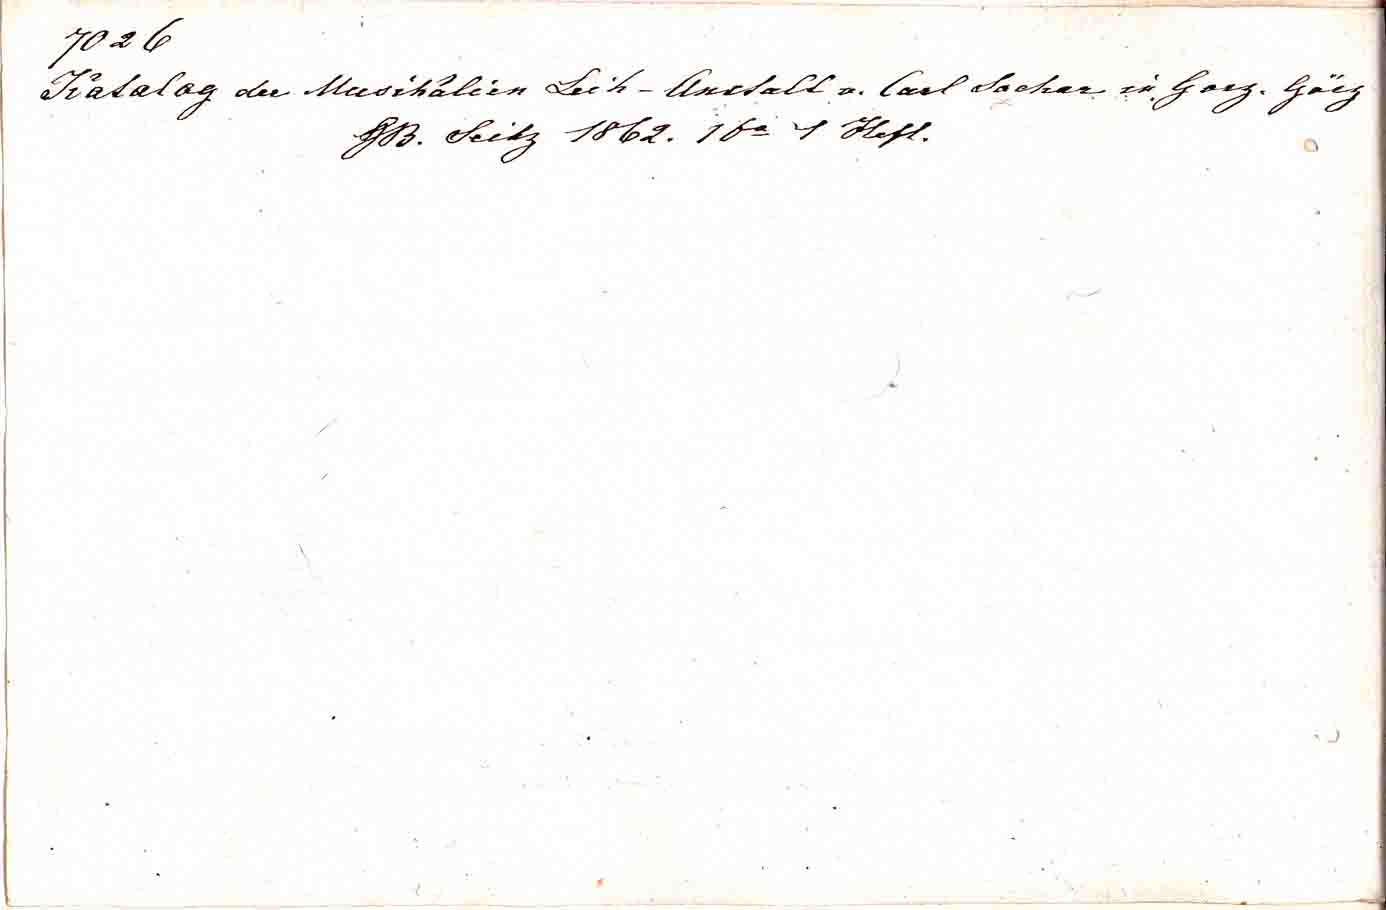 7026
Katalog der Musikalien Leih-Anstalt v. Carl Sochar in Gorz. Görz
GB. Seitz 1862. 16º 1 Heft.